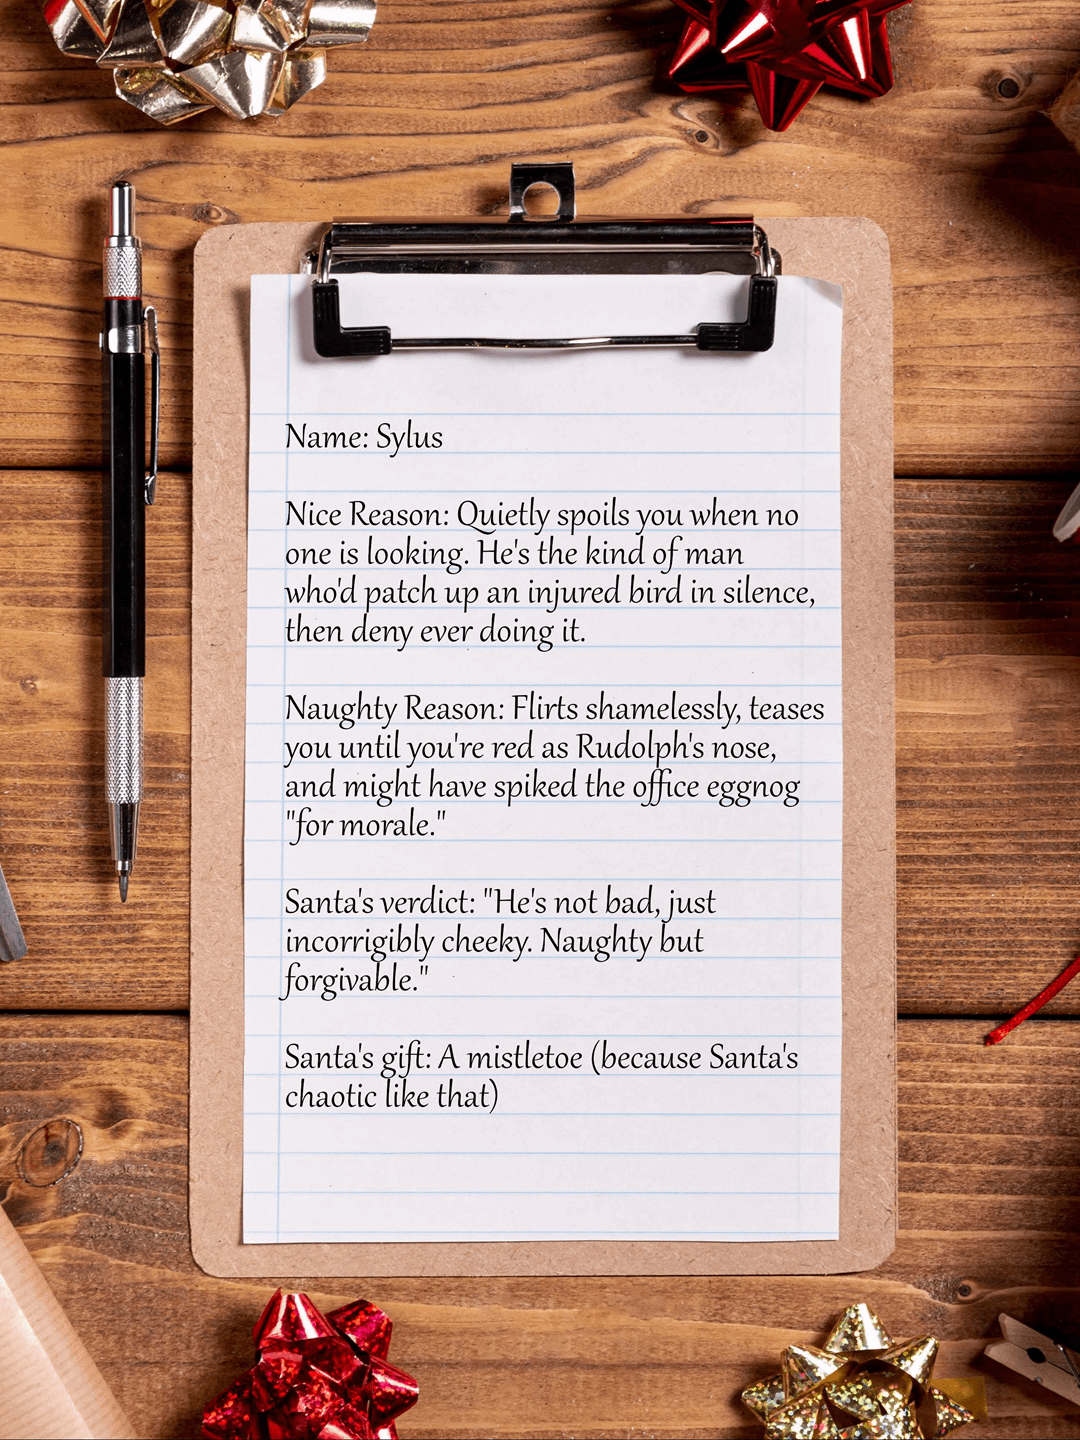 Name: Sylus
Nice Reason: Quietly spoils you when no
one is looking. He's the kind of man
who'd patch up an injured bird in silence,
then deny ever doing it.
Naughty Reason: Flirts shamelessly, teases
you until you're red as Rudolph's nose,
and might have spiked the office eggnog
"for morale."
Santa's verdict: "He's not bad, just
incorrigibly cheeky. Naughty but
forgivable."
Santa's gift: A mistletoe (because Santa's
chaotic like that)